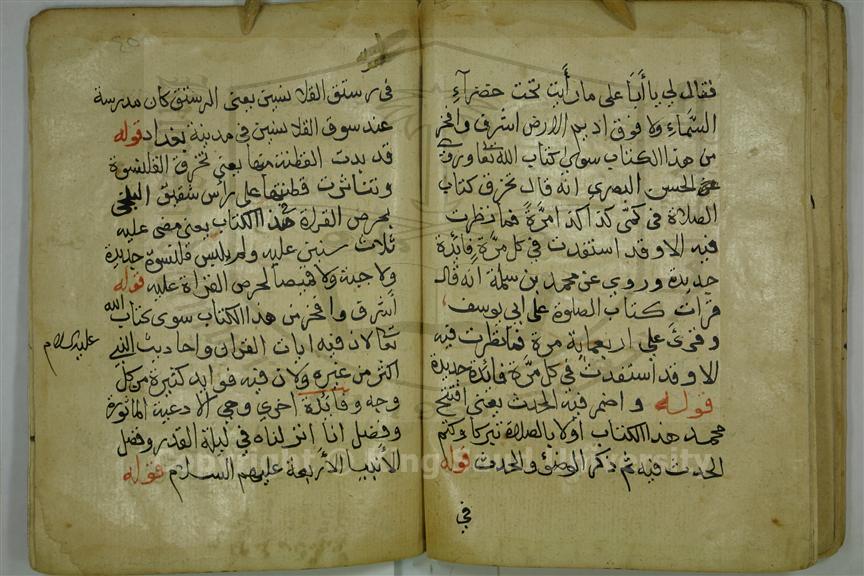 فقال لي يا أبا علي ما رأيت تحت خضرآءِ
السَّماء ولا فوق اديم الارض اشرف وافخر
من هذا الكتاب سوي كتاب الله تعا وروي
عن الحسن البصري انه قال تخرق كتاب
الصلاة في كمي كذا كذا مرَّةً فما نظرت
فيه الا وقد استفدت في كل مرَّة فائدة
جديدة وروي عن محمد بن سلمة انه قال
قرات كتاب الصلوة على ابي يوسف
وقرئ علي اربعماية مرة فما نظرت فيه
الا وقد استفدت في كل مرَّة فائدة جديدة
قوله واضمر فيه الحدث يعني افتتح
محمد هذا الكتاب أولا بالصلاة تبركا وكتم
الحدث فيه ثم ذكر الوضؤ والحدث قوله
في
في رستق القلانسين يعني الرستق كان مدرسة
عند سوق القلانسين في مدينة بغداد قوله
قد بدت القطنة منها يعني تخرق القلنسوة
وتناثرت قطنتها على رأس شقيق البلخي
بحرص القراة هذا الكتاب يعني مضى عليه
ثلاث سنين عليه ولم يلبس قلنسوة جديدة
ولا جبة ولا قميصا لحرص القراة عليه قوله
أشرف وافخر من هذا الكتاب سوى كتاب الله
تعا لان فيه ايات القران واحاديث النبي
عليه السلام
اكثر من غيره ولان فيه فوايد كثيرة من كل
وجه وفائدة اخرى وهي الادعية الماثورة
وفضل انا انزلناه في ليلة القدر وفضل
الانبيا الأربعة عليهم السلام قوله
Copyright © King Saud University